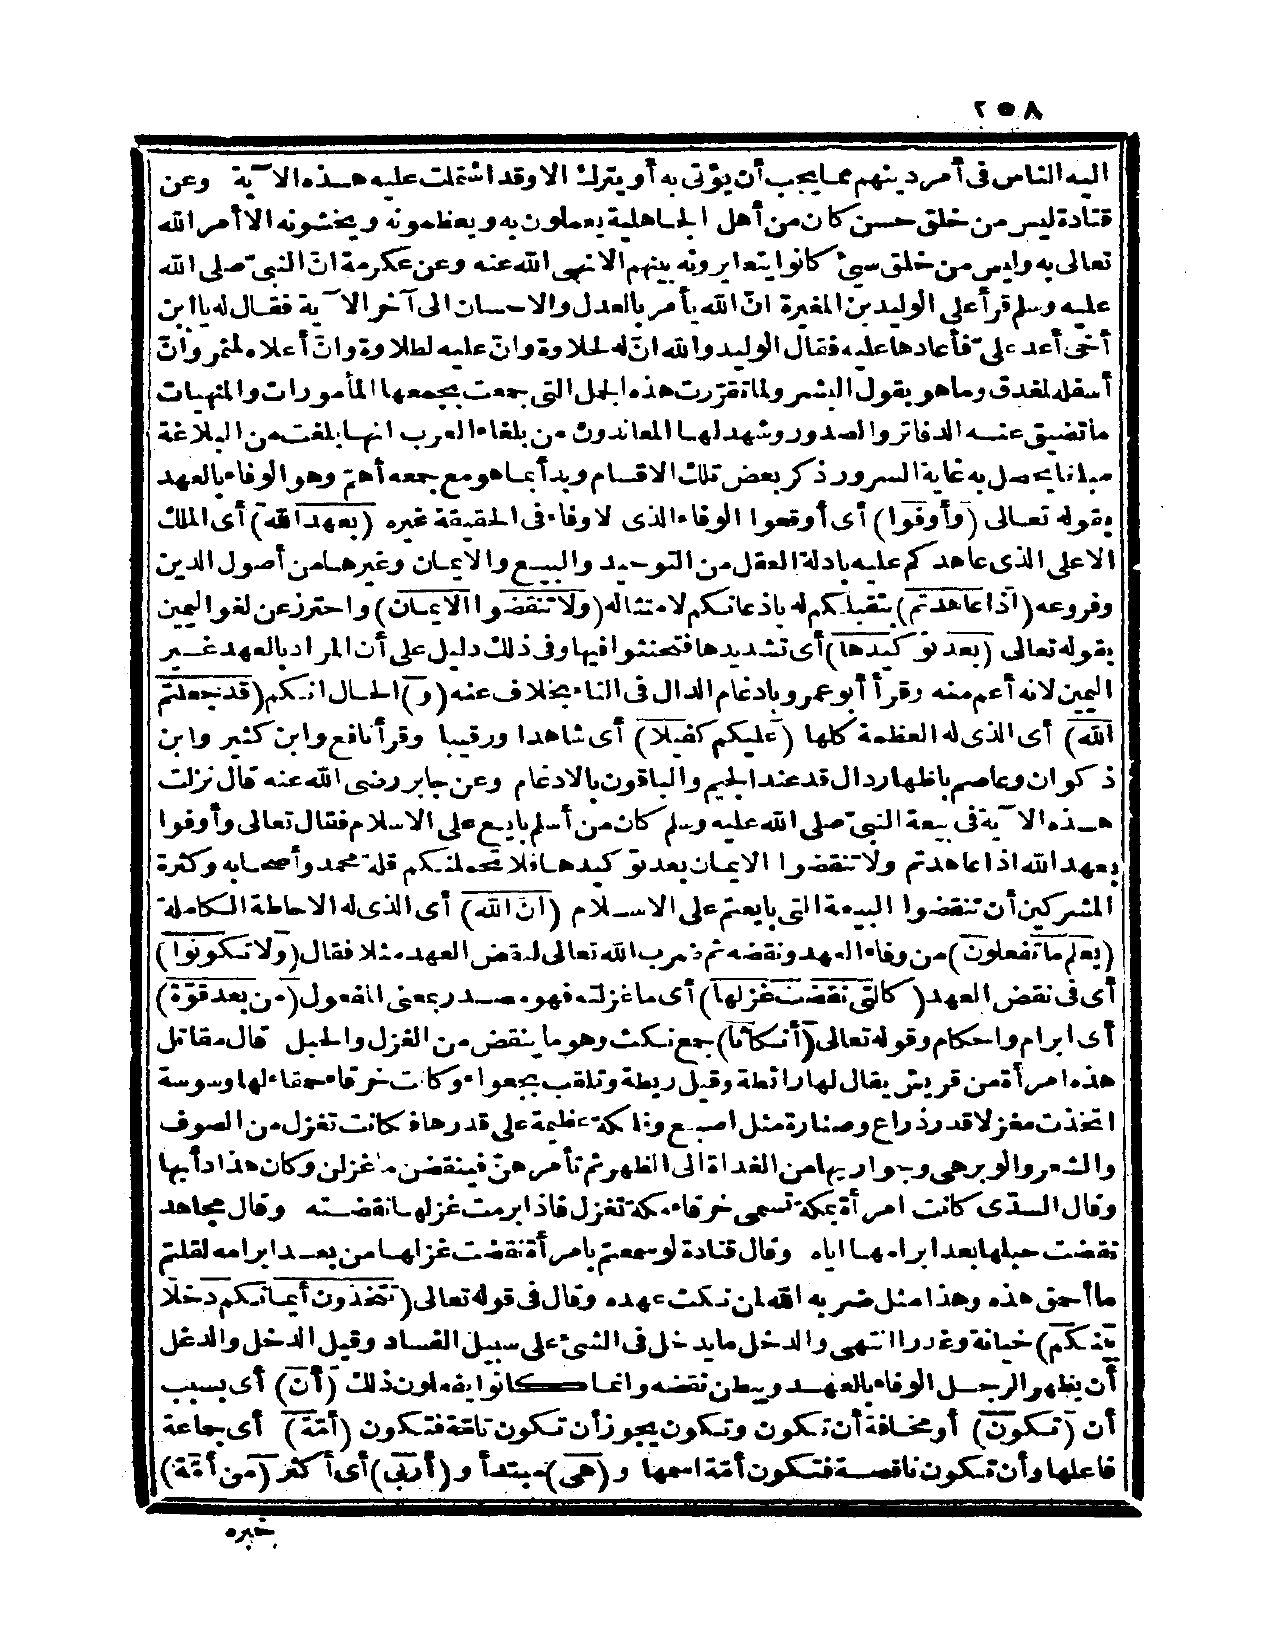 ٢٥٨
اليه الناس فى أمر دينهم مما يجب أن يؤتى به أو يترك الا وقد اشتملت عليه هذه الآية وعن
قتادة ليس من خلق حسن كان من أهل الجاهلية يعملون به ويعظمونه ويخشونه الا أمر الله
تعالى به وليس من خلق سيئ كانوا يتعايرونه بينهم الا نهى الله عنه وعن عكرمة انّ النبىّ صلى الله
عليه وسلم قرأ على الوليد بن المغيرة انّ الله يأمر بالعدل والاحسان الى آخر الآية فقال له يا ابن
أخى أعد علىّ فأعادها عليه فقال الوليد والله انّ له لحلاوة وانّ عليه لطلاوة وانّ أعلاه لمثمر وانّ
أسفله لمغدق وما هو بقول البشر ولما تقرّرت هذه الجمل التى جمعت بجمعها المأمورات والمنهيات
ما تضيق عنه الدفاتر والصدور وشهد لها المعاندون من بلغاء العرب انها بلغت من البلاغة
مبلغا يحصل به غاية السرور ذكر بعض تلك الاقسام وبدأ بما هو مع جمعه أهمّ وهو الوفاء بالعهد
بقوله تعالى (وأوفوا) أى أوقعوا الوفاء الذى لا وفاء فى الحقيقة غيره (بعهد الله) أى الملك
الاعلى الذى عاهدكم عليه بادلة العقل من التوحيد والبيع والايمان وغيرها من أصول الدين
وفروعه (اذا عاهدتم) بتقبلكم له باذعانكم لامتثاله (ولا تنقضوا الايمان) واحترز عن لغو اليمين
بقوله تعالى (بعد توكيدها) أى تشديدها فتحنثوا فيها وفى ذلك دليل على أن المراد بالعهد غير
اليمين لانه أعم منه وقرأ أبو عمرو بادغام الدال فى التاء بخلاف عنه (و) الحال انكم (قد جعلتم
الله) أى الذى له العظمة كلها (عليكم كفيلا) أى شاهدا ورقيبا وقرأ نافع وابن كثير وابن
ذكوان وعاصم باظهار دال قد عند الجيم والباقون بالادغام وعن جابر رضى الله عنه قال نزلت
هذه الآية فى بيعة النبىّ صلى الله عليه وسلم كان من أسلم بايع على الاسلام فقال تعالى وأوفوا
بعهد الله اذا عاهدتم ولا تنقضوا الايمان بعد توكيدها فلا تحملنكم قلة محمد وأصحابه وكثرة
المشركين أن تنقضوا البيعة التى بايعتم على الاسلام (ان الله) أى الذى له الاحاطة الكاملة
(يعلم ما تفعلون) من وفاء العهد ونقضه ثم ضرب الله تعالى لنقض العهد مثلا فقال (ولا تكونوا)
أى فى نقض العهد (كالتى نقضت غزلها) أى ما غزلته فهو مصدر بمعنى المفعول (من بعد قوّة)
أى ابرام واحكام وقوله تعالى (أنكاثا) جمع نكث وهو ما ينقض من الغزل والحبل قال مقاتل
هذه امرأة من قريش يقال لها رائطة وقيل ريطة وتلقب بجعواء وكانت خرقاء حمقاء لها وسوسة
اتخذت مغزلا قدر ذراع وصنارة مثل اصبع وفلكة عظيمة على قدرها فكانت تغزل من الصوف
والشعر والوبر هى وجواريها من الغداة الى الظهر ثم تأمرهنّ فينقضن ما غزلن وكان هذا دأبها
وقال السدّى كانت امرأة بمكة تسمى خرقاء مكة تغزل فاذا ابرمت غزلها نقضته وقال مجاهد
نقضت حبلها بعد ابرامها اياه وقال قتادة لو سمعتم بامرأة نقضت غزلها من بعد ابرامه لقلتم
ما أحمق هذه وهذا مثل ضربه الله لمن نكث عهده وقال فى قوله تعالى (تتخذون أيمانكم دخلا
بينكم) خيانة وغدرا انتهى والدخل ما يدخل فى الشئ على سبيل الفساد وقيل الدخل والدغل
أن يظهر الرجل الوفاء بالعهد ويبطن نقضه وانما كانوا يفعلون ذلك (أن) أى بسبب
أن (تكون) أو مخافة أن تكون وتكون يجوز أن تكون تامّة فتكون (أمّة) أى جماعة
فاعلها وأن تكون ناقصة فتكون أمّة اسمها و (هى) مبتدأ و (أربى) أى أكثر (من أمّة)
خبره